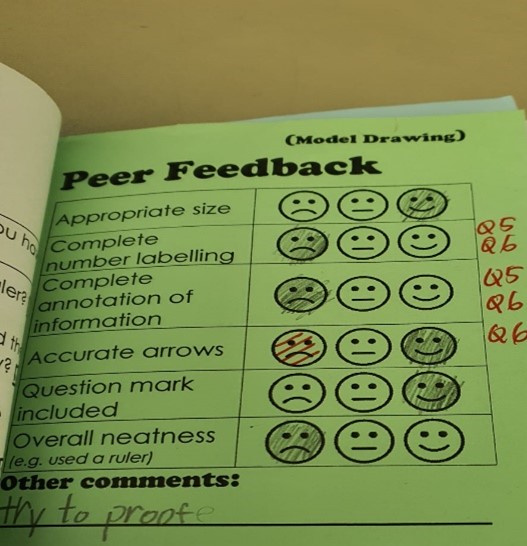 (Model Drawing)
Peer Feedback
Appropriate size
Complete
number labelling
Q5
Q6
Complete
annotation of
information
Q5
Q6
Accurate arrows
Q6
Question mark
included
Overall neatness
(e.g. used a ruler)
Other comments:
try to proofe